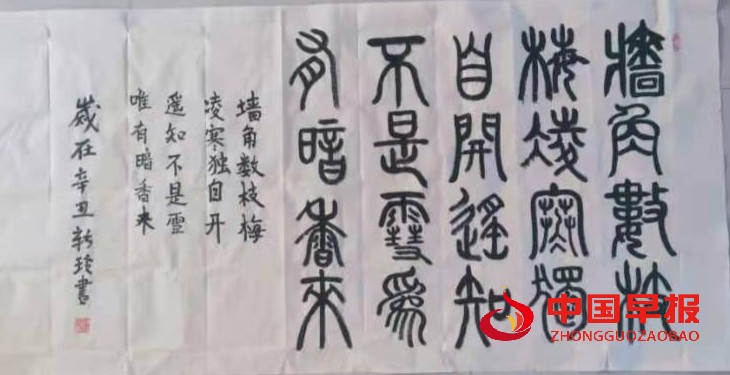 牆角數枝
梅凌寒獨
自開遥知
不是雪爲
有暗香來
墙角数枝梅
凌寒独自开
遥知不是雪
唯有暗香来
嵗在辛丑 書
中国早报
ZHONGGUOZAOBAO